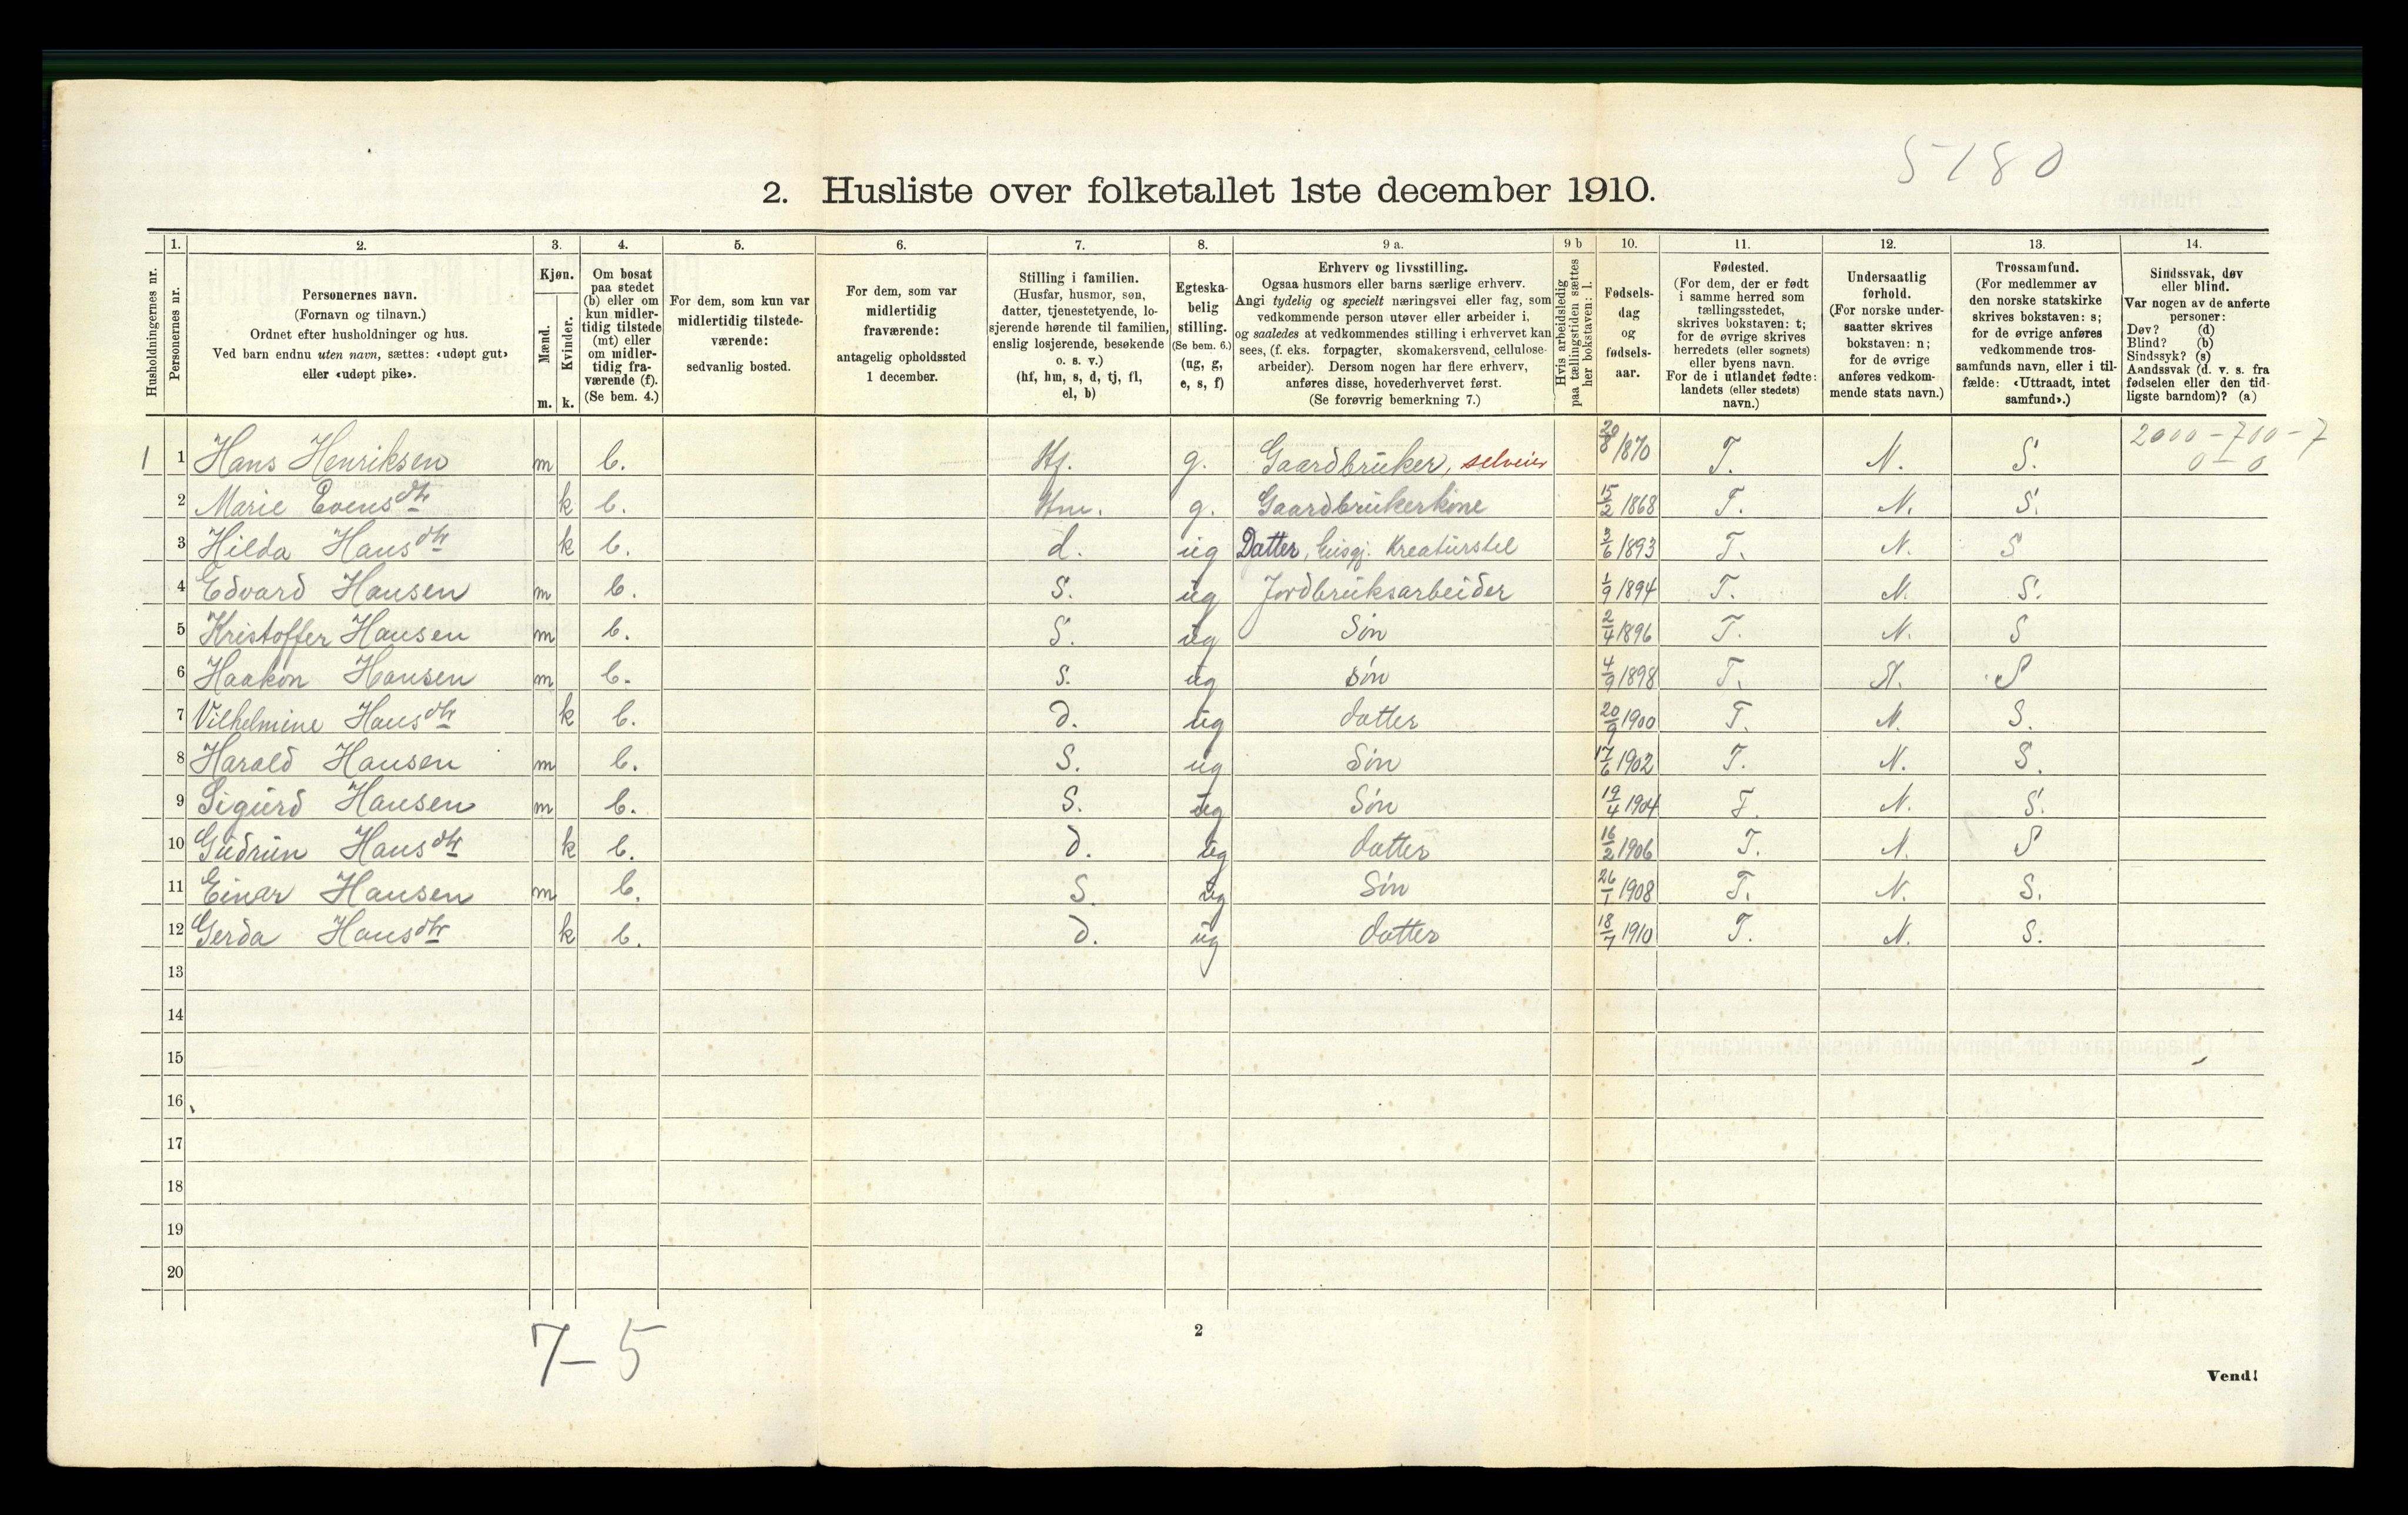 5180
2. Husliste over folketallet 1ste december 1910.
1. 2. 3. 4. 5. 6. 7. 8. 9 a. 9 b 10. 11. 12. 13. 14.
Husholdningernes nr.
Personernes nr.
Personernes navn.
(Fornavn og tilnavn.)
Ordnet efter husholdninger og hus.
Ved barn endnu uten navn, sættes: «udøpt gut»
eller «udøpt pike».
Kjøn.
Mænd.
Kvinder.
m. k.
Om bosat
paa stedet
(b) eller om
kun midler-
tidig tilstede
(mt) eller
om midler-
tidig fra-
værende (f).
(Se bem. 4.)
For dem, som kun var
midlertidig tilstede-
værende:
sedvanlig bosted.
For dem, som var
midlertidig
fraværende:
antagelig opholdssted
1 december.
Stilling i familien.
(Husfar, husmor, søn,
datter, tjenestetyende, lo-
sjerende hørende til familien,
enslig losjerende, besøkende
o. s. v.)
(hf, hm, s, d, tj, fl,
el, b)
Egteska-
belig
stilling.
(Se bem. 6.)
(ug, g,
e, s, f)
Erhverv og livsstilling.
Ogsaa husmors eller barns særlige erhverv.
Angi tydelig og specielt næringsvei eller fag, som
vedkommende person utøver eller arbeider i,
og saaledes at vedkommendes stilling i erhvervet kan
sees, (f. eks. forpagter, skomakersvend, cellulose-
arbeider). Dersom nogen har flere erhverv,
anføres disse, hovederhvervet først.
(Se forøvrig bemerkning 7.)
Hvis arbeidsledig
paa tællingstiden sættes
her bokstaven: l.
Fødsels-
dag
og
fødsels-
aar.
Fødested.
(For dem, der er født
i samme herred som
tællingsstedet,
skrives bokstaven: t;
for de øvrige skrives
herredets (eller sognets)
eller byens navn.
For de i utlandet fødte:
landets (eller stedets)
navn.)
Undersaatlig
forhold.
(For norske under-
saatter skrives
bokstaven: n;
for de øvrige
anføres vedkom-
mende stats navn.)
Trossamfund.
(For medlemmer av
den norske statskirke
skrives bokstaven: s;
for de øvrige anføres
vedkommende tros-
samfunds navn, eller i til-
fælde: «Uttraadt, intet
samfund».)
Sindssvak, døv
eller blind.
Var nogen av de anførte
personer:
Døv? (d)
Blind? (b)
Sindssyk? (s)
Aandssvak (d. v. s. fra
fødselen eller den tid-
ligste barndom)? (a)
1 1 Hans Henriksen m b. Hf. g. Gaardbruker, selveier 20/8 1870 T. N. S. 2000-700-7
0-0
2 Marie Evensdtr k b. Hm. g. Gaardbrukerkone 15/2 1868 T. N. S.
3 Hilda Hansdtr k b. d. ug Datter, husgj. Kreaturstel 3/6 1893 T. N. S
4 Edvard Hansen m b. S. ug Jordbruksarbeider 1/9 1894 T. N. S.
5 Kristoffer Hansen m b. S. ug Søn 2/4 1896 T. N. S
6 Haakon Hansen m b. S. ug søn 4/9 1898 T. N. S
7 Vilhelmine Hansdtr k b. d. ug datter 20/9 1900 T. N. S.
8 Harald Hansen m b. S. ug Søn 17/6 1902 T. N. S.
9 Sigurd Hansen m b. S. ug Søn 19/4 1904 T. N. S.
10 Gudrun Hansdtr k b. d. ug datter 16/2 1906 T. N. S
11 Einar Hansen m b. S. ug Søn 26/1 1908 T. N. S.
12 Gerda Hansdtr k b. d. ug datter 18/7 1910 T. N. S.
13
14
15
16
17
18
19
20
7-5
2
Vend!